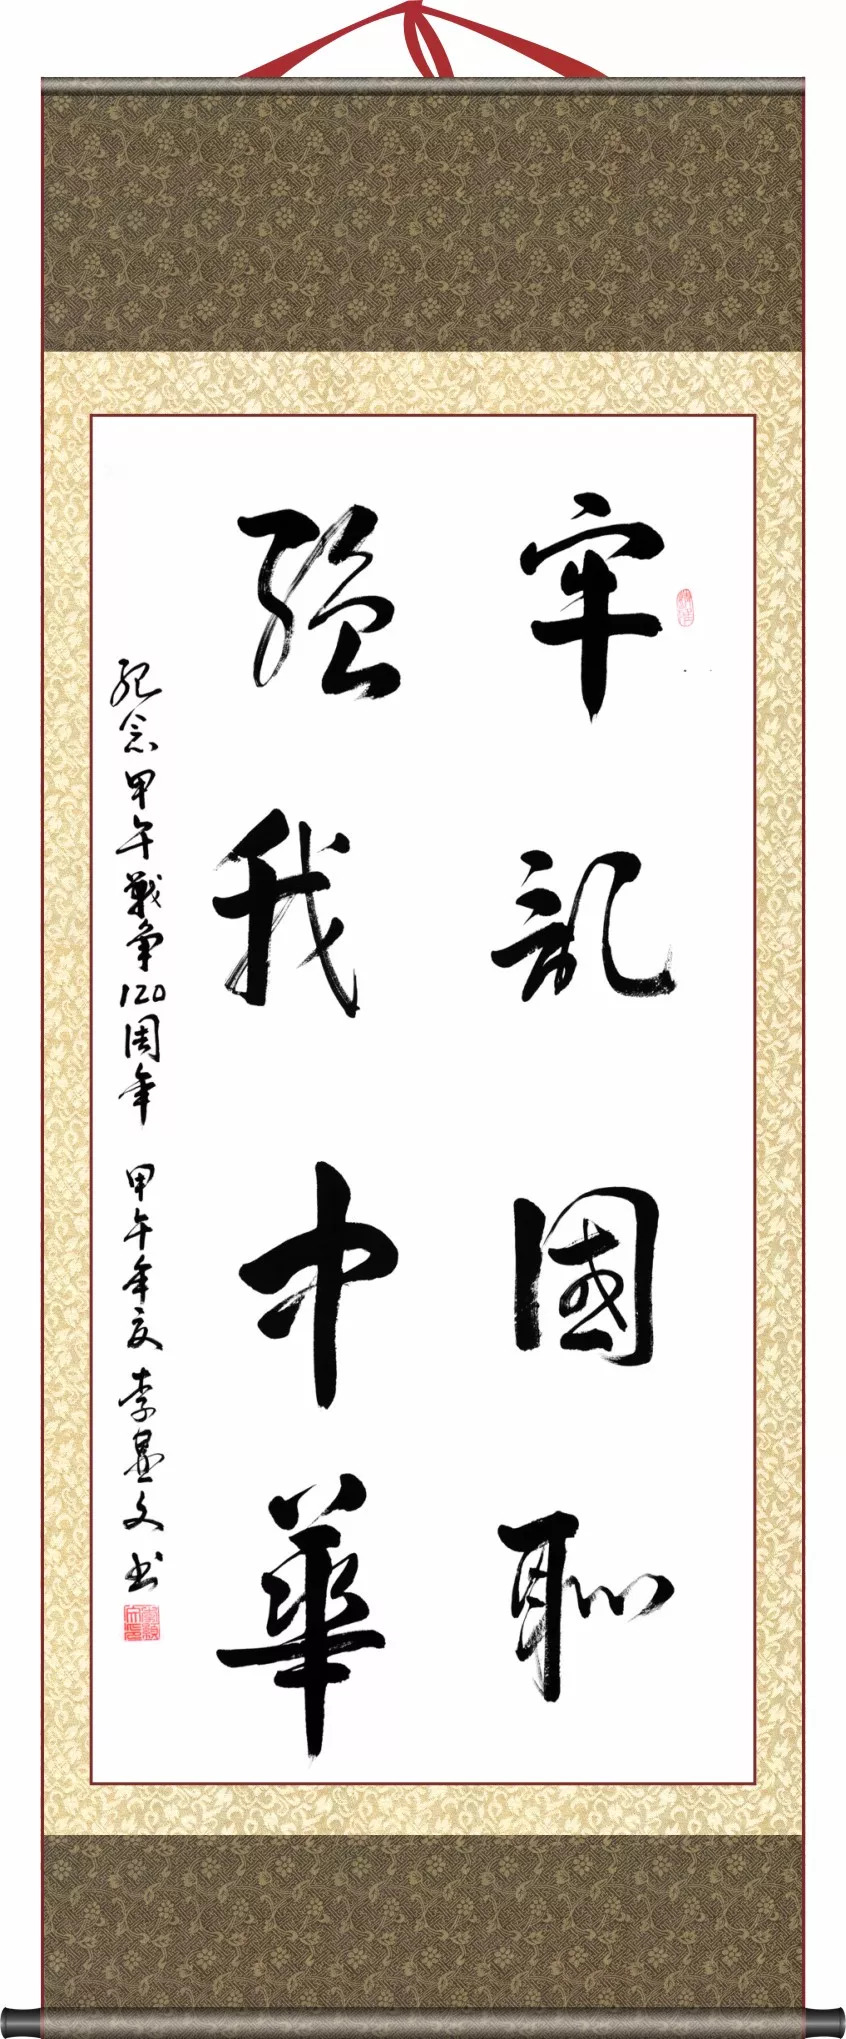 牢記國恥
強我中華
紀念甲午戰爭120周年 甲午年夏 李显文书